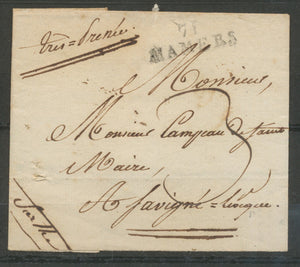 très = Pressée.
71
MAMERS
Monsieur,
Monsieur Campeau de
Maire,
3
A Savigné = L'évêque.
Sarthe